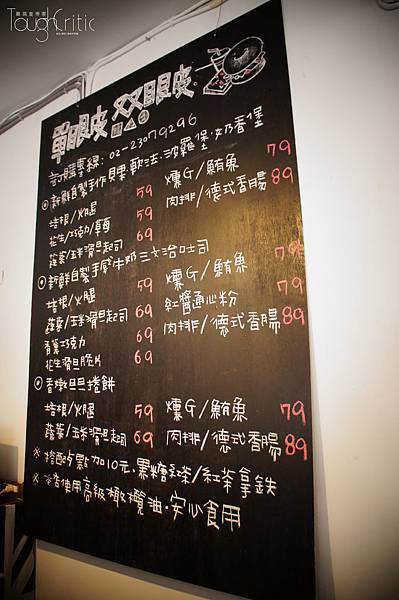 ToughCritic
單眼皮 双眼皮
訂購專線:02-23079296
◎新鮮自製手作貝果.軟法.沙雞堡.奶香堡
培根/火腿 59 燻G/鮪魚 79
花生/巧克力/ 59 肉排/德式香腸 89
蔬菜/玉米滑旦起司 69
◎新鮮自製手感牛奶三文治吐司
培根/火腿 59 燻G/鮪魚 79
蔬菜/玉米滑旦起司 69 紅醬通心粉 79
香蕉巧克力 69 肉排/德式香腸 89
花生滑旦脆片 69
◎香嫩旦旦捲餅
培根/火腿 59 燻G/鮪魚 79
蔬菜/玉米滑旦起司 69 肉排/德式香腸 89
※搭配夕點加10元.黑糖紅茶/紅茶拿鐵
※本店使用高級橄欖油.安心食用